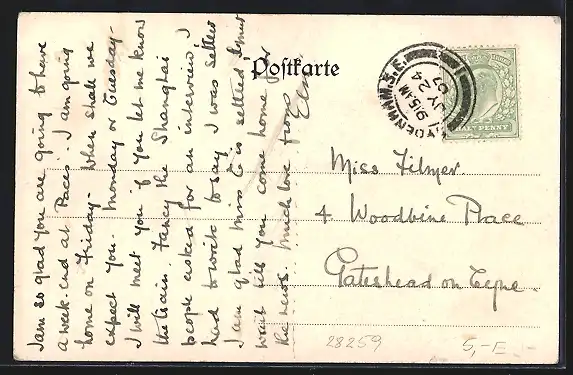 I am so glad you are going to have
a week-end at Paces. I am going
home on Friday. When shall we
expect you. Monday or Tuesday.
I will meet you if you let me know
the train. Fancy the Shanghai
people asked for an interview. I
had to write to say I was settled
I am glad Miss C is settled. I must
wait till you come home for
the news. Much love from
Postkarte
SYDENHAM. S.E.
9.15 AM
JY 24
07
HALFPENNY
Miss Filmer.
4 Woodbine Place
Gateshead on Tyne.
28259
5,-E